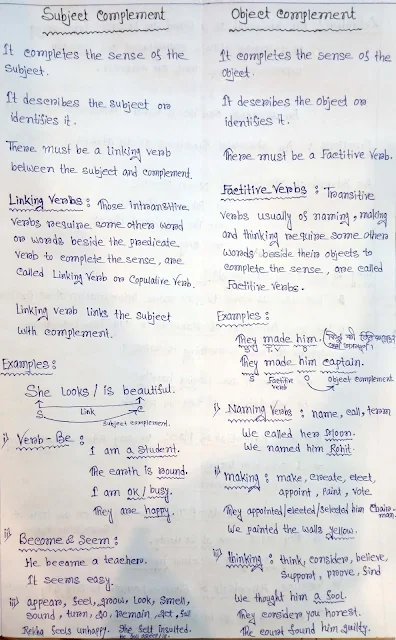 Subject Complement
It completes the sense of the
Subject.
It describes the subject or
identifies it.
There must be a linking verb
between the subject and complement.
Linking Verbs : Those intransitive
verbs require some other word
or words beside the predicate
verb to complete the sense, are
called Linking Verb or Copulative Verb.
Linking verb links the subject
with complement.
Examples :
She looks / is beautiful.
S Link C
Subject complement.
i) Verb - Be :
I am a student.
The earth is round.
I am ok / busy.
They are happy.
ii) Become & Seem :
He became a teacher.
It seems easy.
iii) appear, feel, grow, look, smell,
sound, turn, go, remain, get, fall
Rekha feels unhappy. She felt insulted.
Object Complement
It completes the sense of the
Object.
It describes the Object or
identifies it.
There must be a Factitive Verb.
Factitive Verbs : Transitive
verbs usually of naming, making
and thinking require some other
words beside their objects to
complete the sense, are called
Factitive verbs.
Examples :
They made him.
S F.V O
They made him captain.
S Factitive verb O Object complement
i) Naming Verbs : name, call, term
We called her Moon.
We named him Rohit.
ii) making : make, create, elect,
appoint, paint, vote
They appointed/elected/selected him Chair-
man.
We painted the walls yellow.
iii) thinking : think, consider, believe,
support, prove, find
We thought him a fool.
They consider you honest.
The court found him guilty.